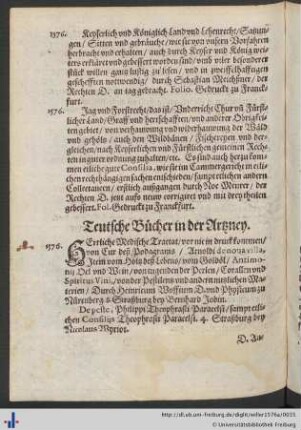 1576. Keyserlich vnd Königlich Land vnd Lehenrecht / Satzun-
gen / Sitten vnd gebräuche / wie sie von vnsern Vorfahren
herbracht vnd erhalten / auch durch Keyser vnd König wei-
ters erkläret vnd gebessert worden sind / vmb viler besonderer
stück willen gantz lustig zu lesen / vnd in zweiffelhafftigen
geschefften notwendig / durch Sebastian Meichßner / der
Rechten D. an tag gebracht. Folio. Gedruckt zu Franck-
furt.
1576. Jag vnd Forstrecht / das ist / Vnderricht Chur vñ Fürst-
licher Land / Graff vnd herrschafften / vnd anderer Obrigkei-
ten gebiet / von verhauwung vnd widerhauwung der Wäld
vnd gehöltz / auch den Wildbänen / Fischereyen vnd der-
gleichen / nach Keyserlichen vnd Fürstlichen gemeinen Rech-
ten in guter ordnung zuhalten / etc. Es sind auch herzu kom-
men etliche gute Consilia, wie sie in Cammergericht in etli-
chen rechthängigen sachen entschieden / sampt etlichen andern
Collectaneen / erstlich außgangen durch Noe Meurer / der
Rechten D. jetzt auffs neuw corrigiret vnd mit drey theilen
gebessert. Fol. Gedruckt zu Franckfurt.
Teutsche Bücher in der Artzney.
1576. HErrliche Medische Tractat / vor nie in druck kommen /
von Cur des Podagrams / Arnoldi de noua villa,
Item vom Holtz des Lebens / vom Goldöl / Antimo-
nij Oel vnd Wein / von tugenden der Perlen / Corallen vnd
Spiritus Vini, von der Pestilentz vnd andern nützlichen Ma-
terien / Durch Heinricum Wolffium D. vnd Physicum zu
Nürenberg. 8. Straßburg bey Bernhard Jobin.
De peste, Philippi Theophrasti Paracelsi / sampt etli-
chen Consilijs Theophrasti Paracelsi. 4. Straßburg bey
Nicolaus Wyriot.
http://dl.ub.uni-freiburg.de/diglit/weller1576a/0035
© Universitätsbibliothek Freiburg